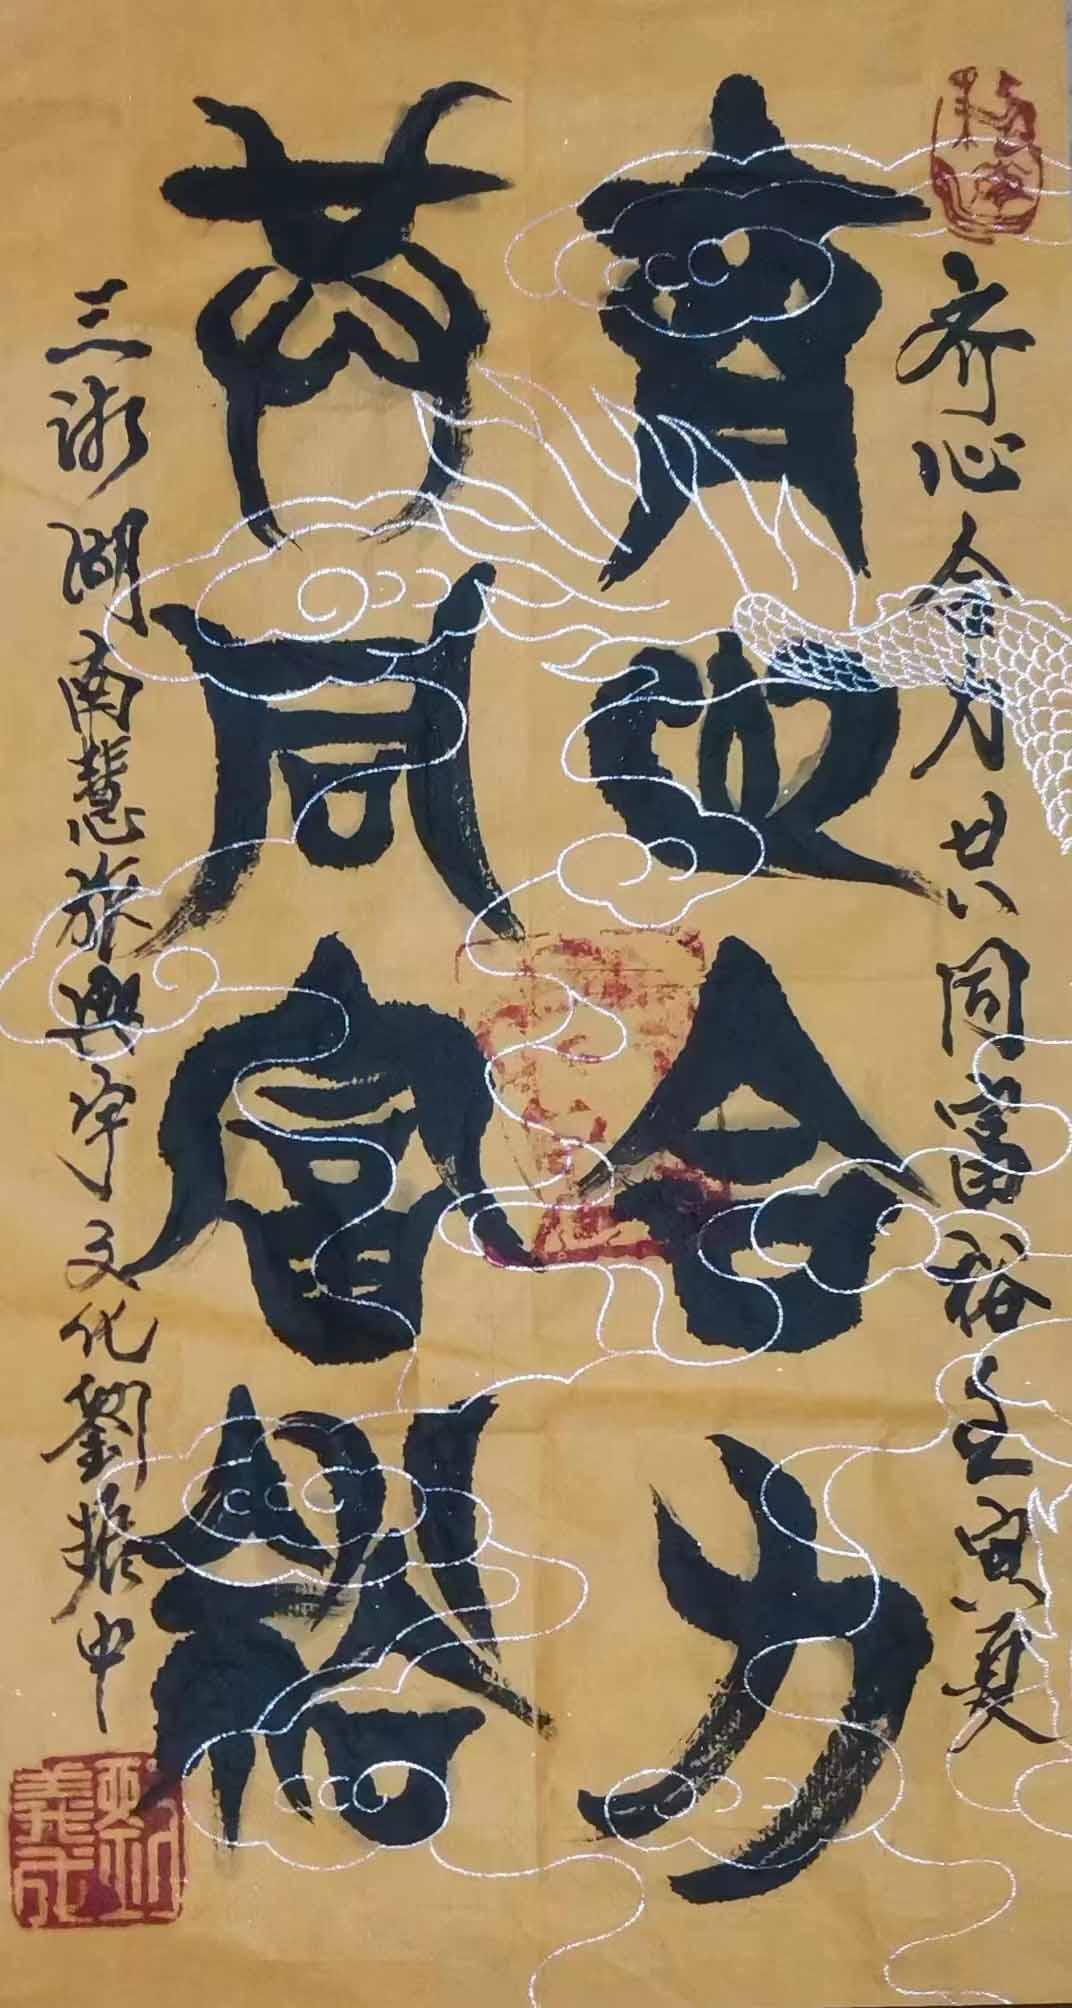 齐心合力共同富裕壬寅夏
齊心合力
共同富裕
三湖南慧旅興字文化劉振中